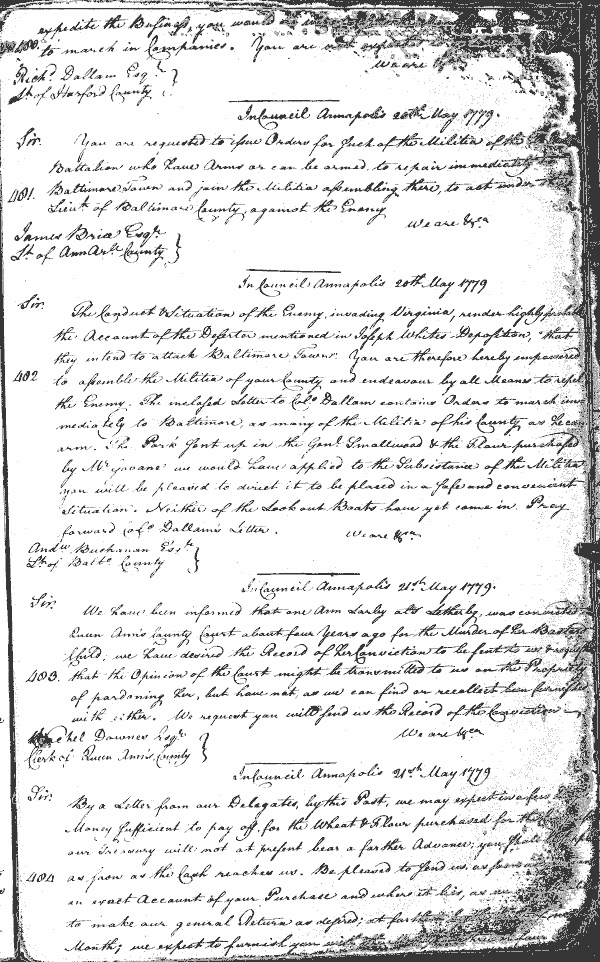 expedite the Business, you would
480. to march in Companies. You are not expected to
We are
Richd. Dallam Esqr.
Lt. of Harford County
In Council Annapolis 20th May 1779.
Sir.
You are requested to issue Orders for such of the Militia of the
Battalion who have Arms or can be armed, to repair immediately
481. Baltimore Town and join the Militia assembling there, to act under
Lieutt. of Baltimore County, against the Enemy
We are &ca
James Brice Esqr.
Lt. of Ann Arl. County
In Council Annapolis 20th May 1779
Sir.
The Conduct & Situation of the Enemy, invading Virginia, render highly probable
the Account of the Deserter mentioned in Joseph White's Deposition, "that
they intend to attack Baltimore Town". You are therefore hereby empowered
482 to assemble the Militia of your County and endeavour by all Means to repel
the Enemy. The inclosed Letter to Colo. Dallam contains Orders to march im
mediately to Baltimore, as many of the Militia of his County, as he can
arm. The Pork sent up in the Genl. Smallwood & the Flour purchased
by Mr. Govane we would have applied to the Subsistance of the Militia
you will be pleased to direct it to be placed in a safe and convenient
Situation. Neither of the Look out Boats have yet come in. Pray
forward Colo. Dallam's Letter. We are &ca
Andw. Buchanan Esqr.
Lt. of Balto. County
In Council Annapolis 21st. May 1779.
Sir.
We have been informed that one Ann Larby als Letherby, was convicted in
Queen Ann's County Court about four Years ago for the Murder of her Bastard
Child; we have desired the Record of her Conviction to be sent to us & request
483. that the Opinion of the Court might be transmitted to us on the Propriety
of pardoning her, but have not, as we can find or recollect been furnished
with either. We request you will send us the Record of the Conviction
We are &ca
Downes Esqr.
Clerk of Queen Ann's County
In Council Annapolis 21st. May 1779
Sir.
By a Letter from our Delegates, by this Post, we may expect in a few
Money sufficient to pay off, for the Wheat & Flour purchased for the
our Treasury will not at present bear a farther Advance; you shall
484 as soon as the Cash reaches us. Be pleased to send us, as soon as
an exact Account of your Purchase and where it lies, as we
to make our general Return as desired; at farthest by the
Month; we expect to furnish you with